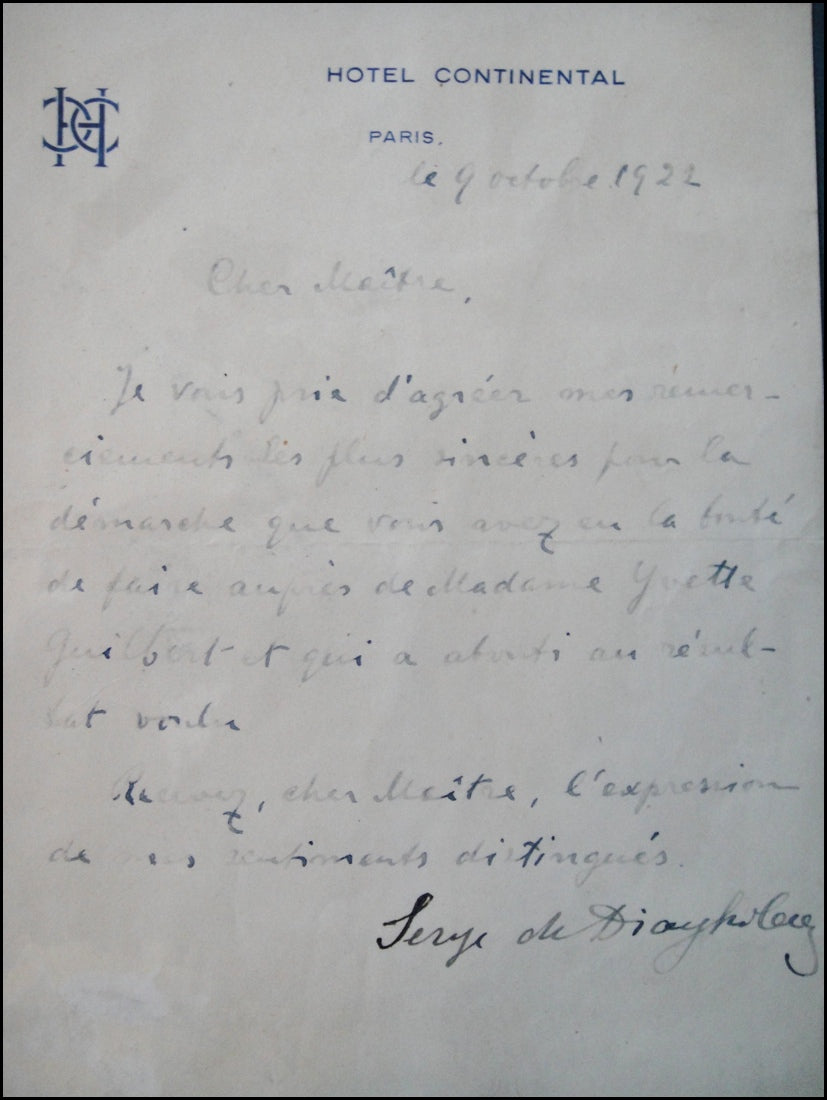 HC
HOTEL CONTINENTAL
PARIS.
le 9 octobre 1922
Cher Maître,
Je vous prie d'agréer mes remer-
ciements les plus sincères pour la
démarche que vous avez eu la bonté
de faire auprès de Madame Yvette
Guilbert et qui a abouti au résul-
tat voulu
Recevez, cher Maître, l'expression
de mes sentiments distingués.
Serge de Diaghilew